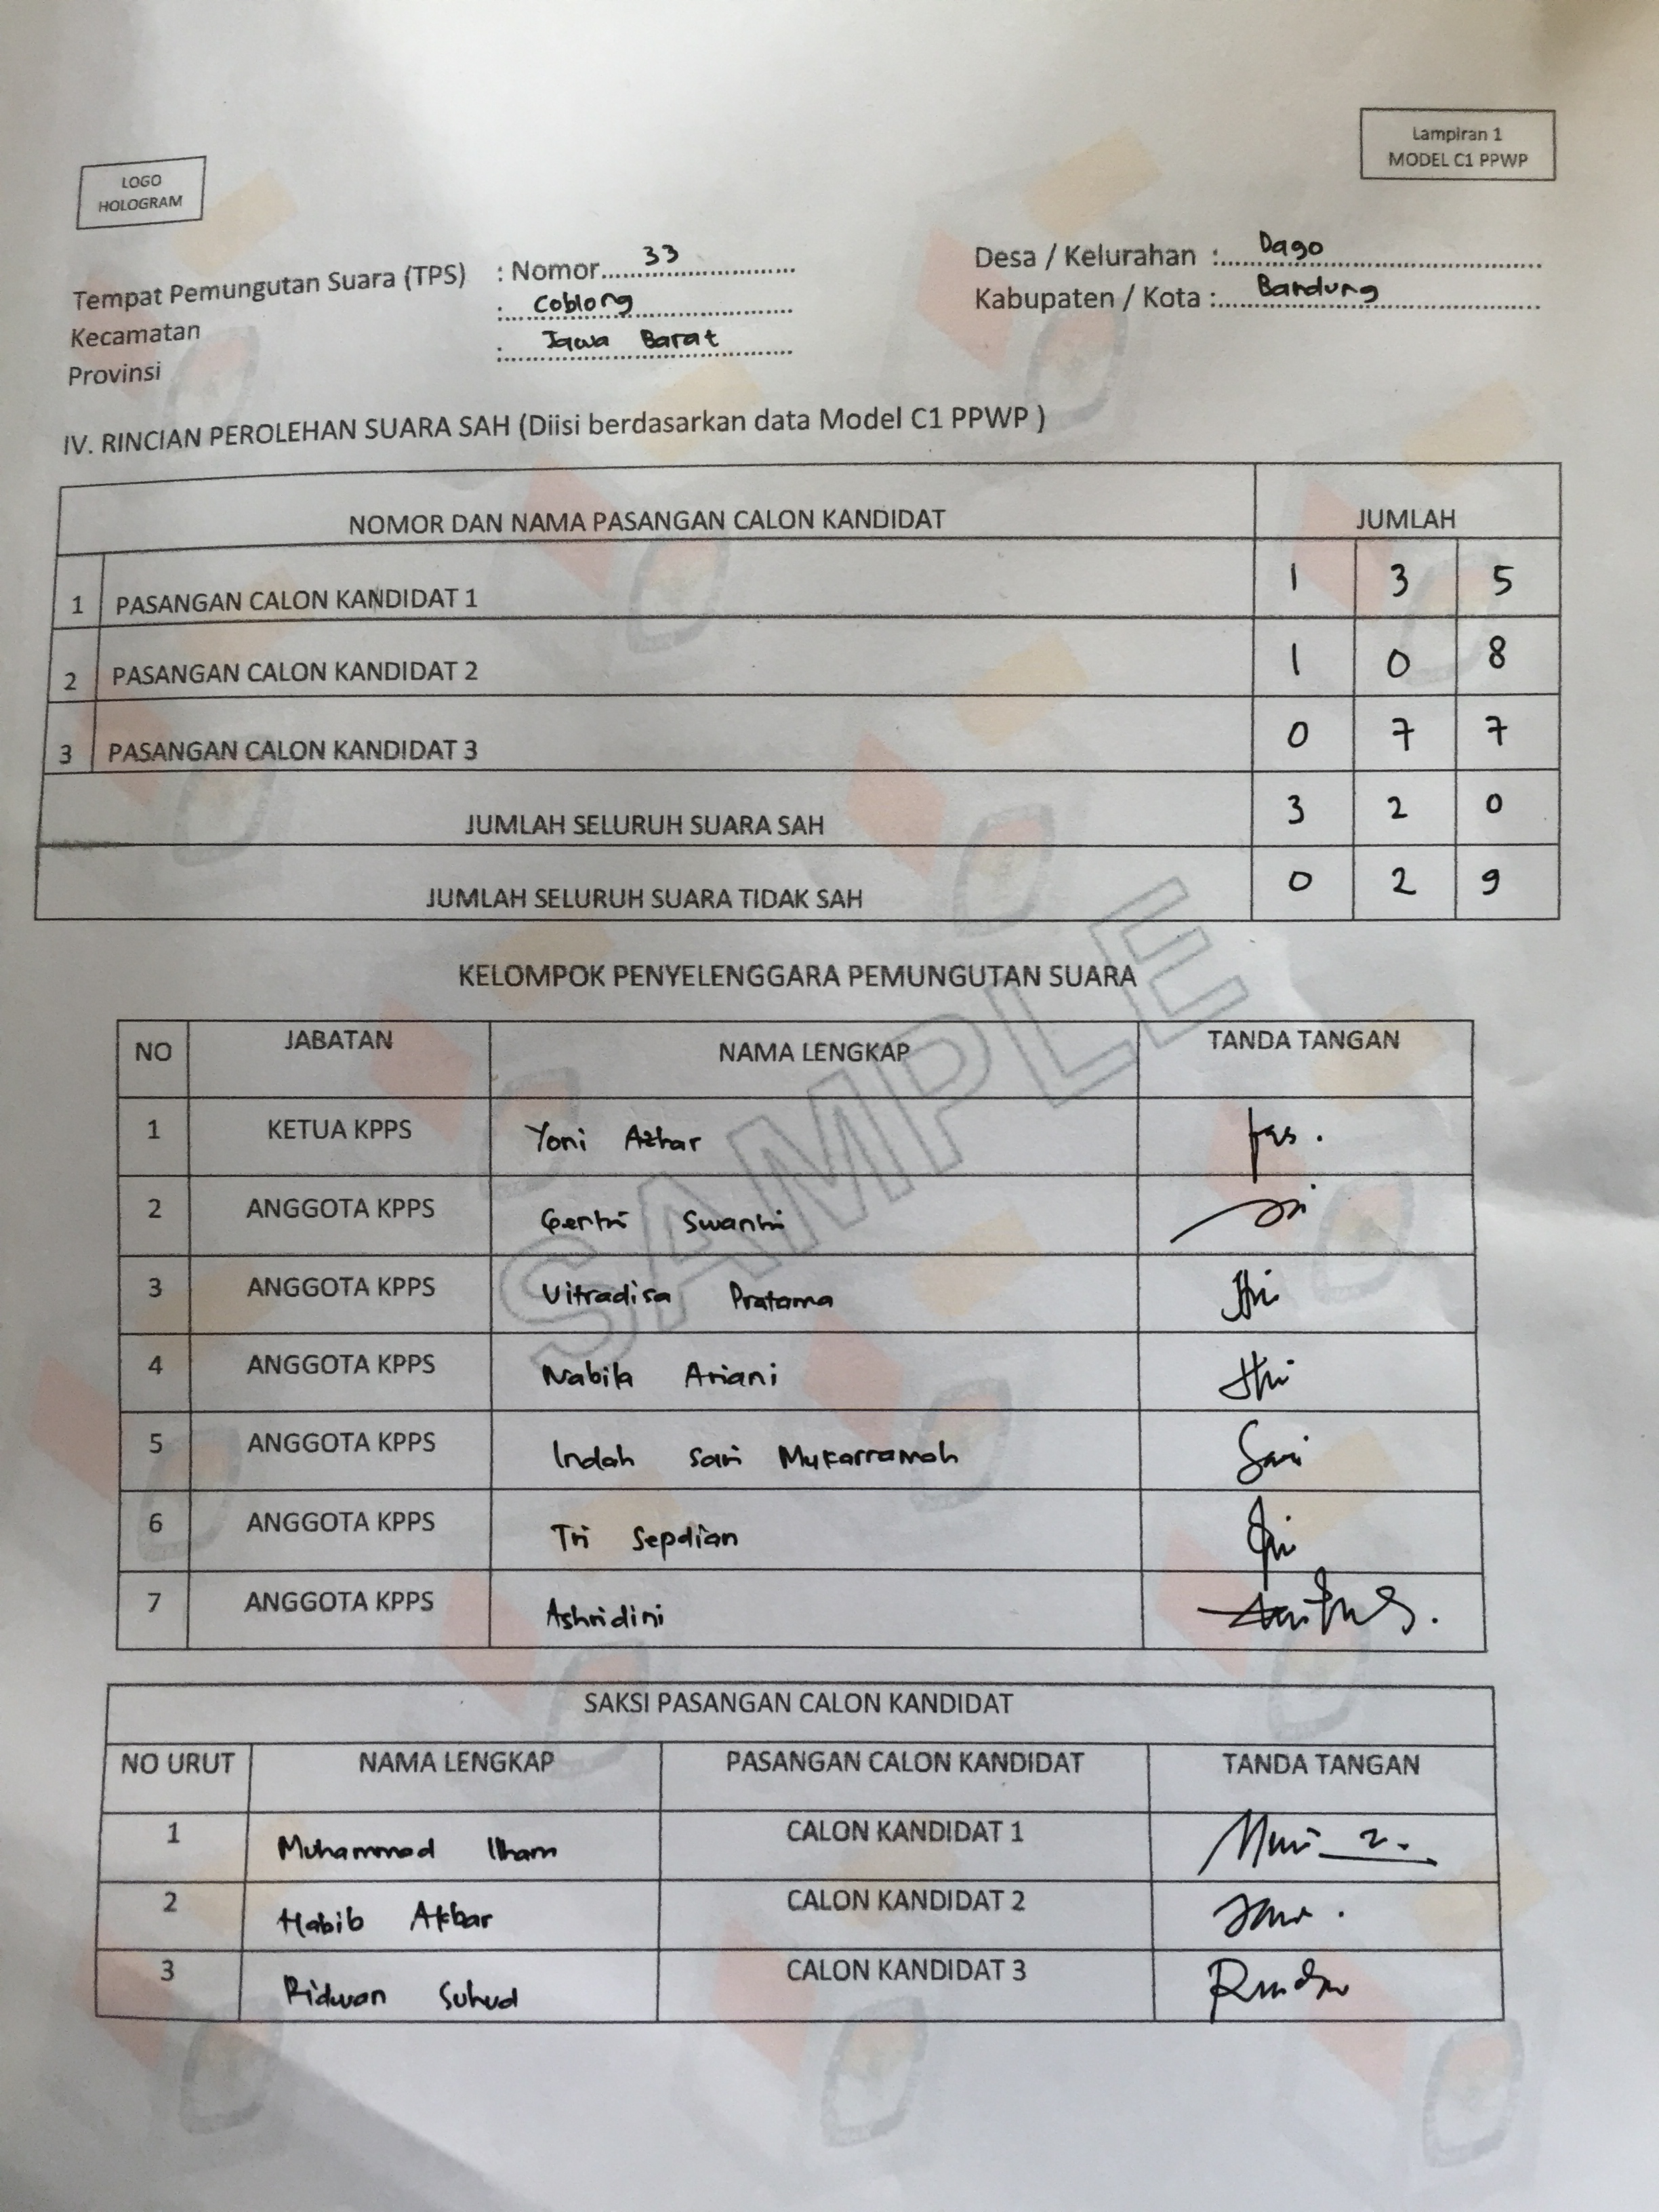 Lampiran 1
MODEL C1 PPWP
LOGO
HOLOGRAM
Tempat Pemungutan Suara (TPS) : Nomor 33
Kecamatan : Coblong
Provinsi : Jawa Barat
Desa / Kelurahan : Dago
Kabupaten / Kota : Bandung
IV. RINCIAN PEROLEHAN SUARA SAH (Diisi berdasarkan data Model C1 PPWP )
NOMOR DAN NAMA PASANGAN CALON KANDIDAT JUMLAH
1 PASANGAN CALON KANDIDAT 1 1 3 5
2 PASANGAN CALON KANDIDAT 2 1 0 8
3 PASANGAN CALON KANDIDAT 3 0 7 7
JUMLAH SELURUH SUARA SAH 3 2 0
JUMLAH SELURUH SUARA TIDAK SAH 0 2 9
SAMPLE
KELOMPOK PENYELENGGARA PEMUNGUTAN SUARA
NO JABATAN NAMA LENGKAP TANDA TANGAN
1 KETUA KPPS Yoni Azhar
2 ANGGOTA KPPS Gertri Swantri
3 ANGGOTA KPPS Vitradisa Pratama
4 ANGGOTA KPPS Nabila Ariani
5 ANGGOTA KPPS Indah Sari Mukarramah
6 ANGGOTA KPPS Tri Sepdian
7 ANGGOTA KPPS Ashridini
SAKSI PASANGAN CALON KANDIDAT
NO URUT NAMA LENGKAP PASANGAN CALON KANDIDAT TANDA TANGAN
1 Muhammad Ilham CALON KANDIDAT 1
2 Habib Akbar CALON KANDIDAT 2
3 Ridwan Suhud CALON KANDIDAT 3